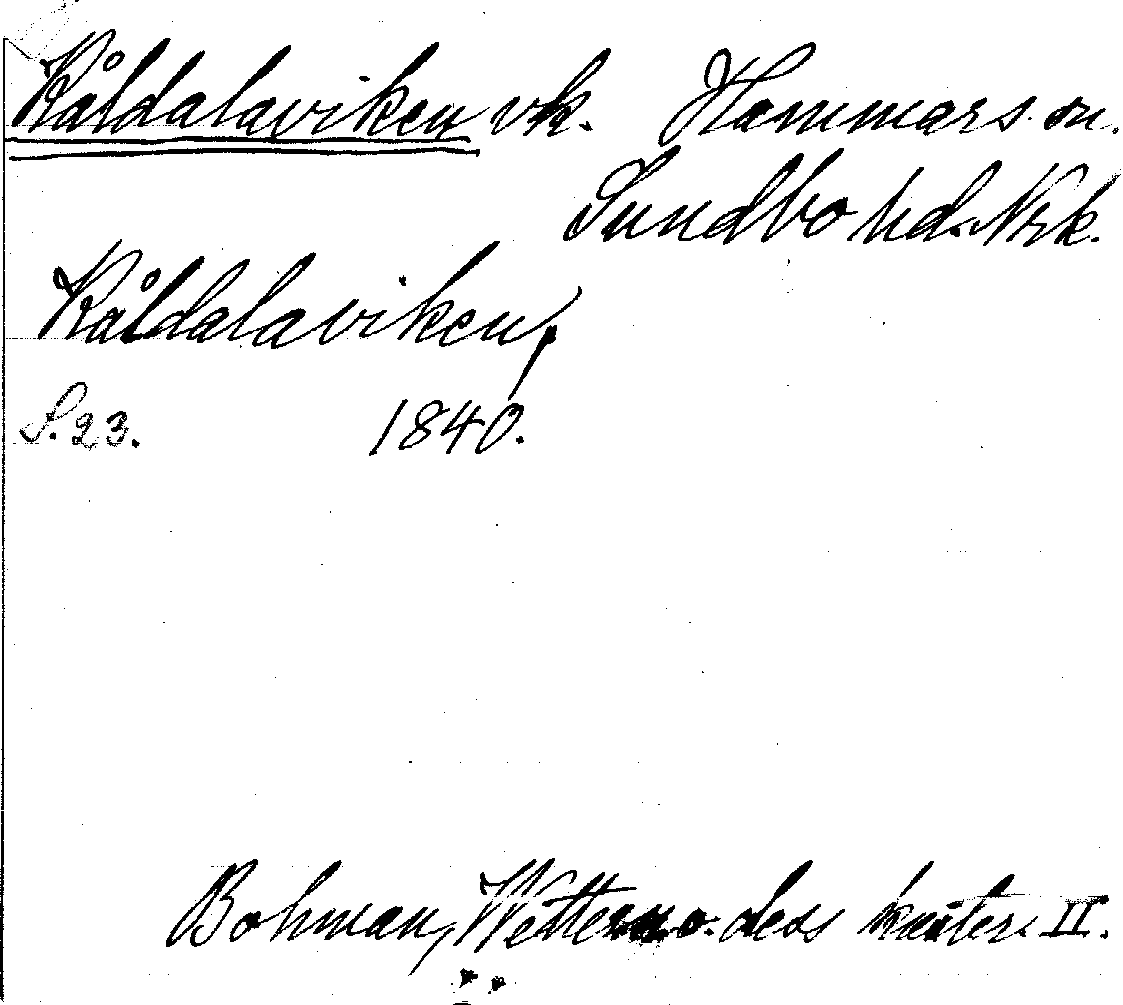 Kåldalaviken vk. Hammars sn.
Sundbo hd. Nrk.
Kåldalaviken,
S. 23. 1840.
Bohman, Wettern o. dess kuster. II.